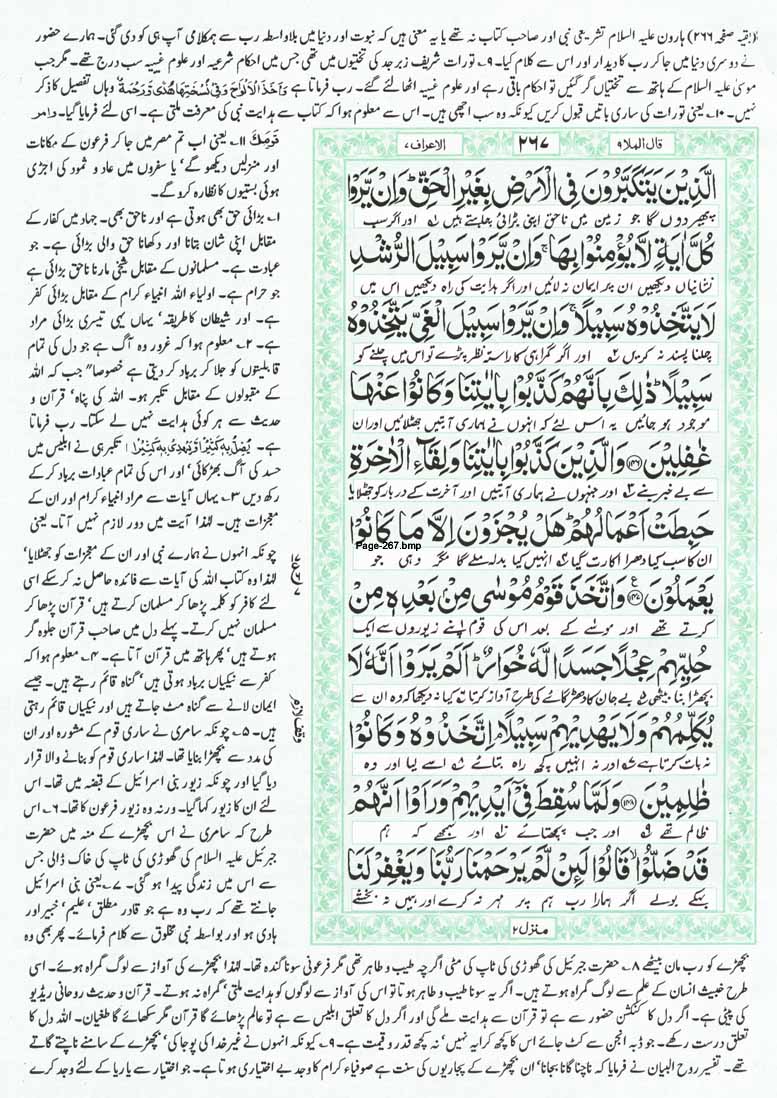 (بقیہ صفحہ ۲۶۶) ہارون علیہ السلام تشریعی نبی اور صاحب کتاب نہ تھے یا یہ معنی ہیں کہ نبوت اور دنیا میں بلاواسطہ رب سے ہمکلامی آپ ہی کو دی گئی۔ ہمارے حضور
نے دوسری دنیا میں جا کر رب کا دیدار اور اس سے کلام کیا۔ ۹۔ تورات شریف زبرجد کی تختیوں میں تھی جس میں احکام شرعیہ اور علوم غیبیہ سب درج تھے۔ مگر جب
موسیٰ علیہ السلام کے ہاتھ سے تختیاں گر گئیں تو احکام باقی رہے اور علوم غیبیہ اٹھا لئے گئے۔ رب فرماتا ہے وَاَخَذَ الْاَلْوَاحَ وَفِيْ نُسْخَتِهَا هُدًى وَّرَحْمَةٌ وہاں تفصیل کا ذکر
نہیں۔ ۱۰۔ یعنی تورات کی ساری باتیں قبول کریں کیونکہ وہ سب اچھی ہیں۔ اس سے معلوم ہوا کہ کتاب سے ہدایت نبی کی معرفت ملتی ہے۔ اسی لئے فرمایا گیا۔ وامر
قال الملا۹
۲۶۷
الاعراف۷
الَّذِيْنَ يَتَكَبَّرُوْنَ فِى الْاَرْضِ بِغَيْرِ الْحَقِّ ؕ وَاِنْ يَّرَوْا
پھیر دوں گا جو زمین میں ناحق اپنی بڑائی چاہتے ہیں اور اگر سب
كُلَّ اٰيَةٍ لَّا يُؤْمِنُوْا بِهَا ۚ وَاِنْ يَّرَوْا سَبِيْلَ الرُّشْدِ
نشانیاں دیکھیں ان پر ایمان نہ لائیں اور اگر ہدایت کی راہ دیکھیں اس میں
لَا يَتَّخِذُوْهُ سَبِيْلًا ۚ وَاِنْ يَّرَوْا سَبِيْلَ الْغَىِّ يَتَّخِذُوْهُ
چلنا پسند نہ کریں اور اگر گمراہی کا راستہ نظر پڑے تو اس میں چلنے کو
سَبِيْلًا ؕ ذٰلِكَ بِاَنَّهُمْ كَذَّبُوْا بِاٰيٰتِنَا وَكَانُوْا عَنْهَا
موجود ہو جائیں یہ اس لئے کہ انہوں نے ہماری آیتیں جھٹلائیں اور ان
غٰفِلِيْنَ ﴿۱۴۶﴾ وَالَّذِيْنَ كَذَّبُوْا بِاٰيٰتِنَا وَلِقَآءِ الْاٰخِرَةِ
سے بے خبر بنے اور جنہوں نے ہماری آیتیں اور آخرت کے دربار کو جھٹلایا
حَبِطَتْ اَعْمَالُهُمْ ؕ هَلْ يُجْزَوْنَ اِلَّا مَا كَانُوْا
Page-267.bmp
ان کا سب کیا دھرا اکارت گیا انہیں کیا بدلہ ملے گا مگر وہی جو
يَعْمَلُوْنَ ﴿۱۴۷﴾ وَاتَّخَذَ قَوْمُ مُوْسٰى مِنْۢ بَعْدِهٖ مِنْ
کرتے تھے اور موسیٰ کے بعد اس کی قوم اپنے زیوروں سے ایک
حُلِيِّهِمْ عِجْلًا جَسَدًا لَّهٗ خُوَارٌ ؕ اَلَمْ يَرَوْا اَنَّهٗ لَا
بچھڑا بنا بیٹھی بے جان کا دھڑ گائے کی طرح آواز کرتا کیا نہ دیکھا کہ وہ ان سے
يُكَلِّمُهُمْ وَلَا يَهْدِيْهِمْ سَبِيْلًا ۘ اِتَّخَذُوْهُ وَكَانُوْا
نہ بات کرتا ہے اور نہ انہیں کچھ راہ بتائے اسے لیا اور وہ
ظٰلِمِيْنَ ﴿۱۴۸﴾ وَلَمَّا سُقِطَ فِىْۤ اَيْدِيْهِمْ وَرَاَوْا اَنَّهُمْ
ظالم تھے اور جب پچھتائے اور سمجھے کہ ہم
قَدْ ضَلُّوْا ۙ قَالُوْا لَئِنْ لَّمْ يَرْحَمْنَا رَبُّنَا وَيَغْفِرْ لَنَا
بہکے بولے اگر ہمارا رب ہم پر مہر نہ کرے اور ہمیں نہ بخشے
منزل۲
وقف لازم
قَوْمَكَ ۱۱۔ یعنی اب تم مصر میں جا کر فرعون کے مکانات
اور منزلیں دیکھو گے‘ یا سفروں میں عاد و ثمود کی اجڑی
ہوئی بستیوں کا نظارہ کرو گے۔
۱۔ بڑائی حق بھی ہوتی ہے اور ناحق بھی۔ جہاد میں کفار کے
مقابل اپنی شان بتانا اور دکھانا حق والی بڑائی ہے۔ جو
عبادت ہے۔ مسلمانوں کے مقابل شیخی مارنا ناحق بڑائی ہے
جو حرام ہے۔ اولیاء اللہ انبیاء کرام کے مقابل بڑائی کفر
ہے۔ اور شیطان کا طریقہ‘ یہاں یہی تیسری بڑائی مراد
ہے۔ ۲۔ معلوم ہوا کہ غرور وہ آگ ہے جو دل کی تمام
قابلیتوں کو جلا کر برباد کر دیتی ہے خصوصاً جب کہ اللہ
کے مقبولوں کے مقابل تکبر ہو۔ اللہ کی پناہ‘ قرآن و
حدیث سے ہر کوئی ہدایت نہیں لے سکتا۔ رب فرماتا
ہے۔ يُضِلُّ بِهٖ كَثِيْرًا وَّيَهْدِيْ بِهٖ كَثِيْرًا تکبر ہی نے ابلیس میں
حسد کی آگ بھڑکائی‘ اور اس کی تمام عبادات برباد کر کے
رکھ دیں ۳۔ یہاں آیات سے مراد انبیاء کرام اور ان کے
معجزات ہیں۔ لہٰذا آیت میں دور لازم نہیں آتا۔ یعنی
چونکہ انہوں نے ہمارے نبی اور ان کے معجزات کو جھٹلایا‘
لہٰذا وہ کتاب اللہ کی آیات سے فائدہ حاصل نہ کر سکے اسی
لئے کافر کو کلمہ پڑھا کر مسلمان کرتے ہیں‘ قرآن پڑھا کر
مسلمان نہیں کرتے۔ پہلے دل میں صاحب قرآن جلوہ گر
ہوتے ہیں‘ پھر ہاتھ میں قرآن آتا ہے۔ ۴۔ معلوم ہوا کہ
کفر سے نیکیاں برباد ہوتی ہیں‘ گناہ قائم رہتے ہیں۔ جیسے
ایمان لانے سے گناہ مٹ جاتے ہیں اور نیکیاں قائم رہتی
ہیں۔ ۵۔ چونکہ سامری نے ساری قوم کے مشورہ اور ان
کی مدد سے بچھڑا بنایا تھا۔ لہٰذا ساری قوم کو بنانے والا قرار
دیا گیا اور چونکہ زیور بنی اسرائیل کے قبضہ میں تھا۔ اس
لئے ان کا زیور کہا گیا۔ ورنہ وہ زیور فرعون کا تھا۔ ۶۔ اس
طرح کہ سامری نے اس بچھڑے کے منہ میں حضرت
جبرئیل علیہ السلام کی گھوڑی کی ٹاپ کی خاک ڈالی جس
سے اس میں زندگی پیدا ہو گئی۔ ۷۔ یعنی بنی اسرائیل
جانتے تھے کہ رب وہ ہے جو قادر مطلق‘ علیم‘ خبیر اور
ہادی ہو اور بواسطہ نبی مخلوق سے کلام فرمائے۔ پھر بھی وہ
بچھڑے کو رب مان بیٹھے ۸۔ حضرت جبرئیل کی گھوڑی کی ٹاپ کی مٹی اگرچہ طیب و طاہر تھی مگر فرعونی سونا گندہ تھا۔ لہٰذا بچھڑے کی آواز سے لوگ گمراہ ہوئے۔ اسی
طرح خبیث انسان کے علم سے لوگ گمراہ ہوتے ہیں۔ اگر یہ سونا طیب و طاہر ہوتا تو اس کی آواز سے لوگوں کو ہدایت ملتی‘ گمراہ نہ ہوتے۔ قرآن و حدیث روحانی ریڈیو
کی پیٹی ہے۔ اگر دل کا کنکشن حضور سے ہے تو قرآن سے ہدایت ملے گی اور اگر دل کا تعلق ابلیس سے ہے تو عالم پڑھائے گا قرآن مگر سکھائے گا طغیان۔ اللہ دل کا
تعلق درست رکھے۔ جو ڈبہ انجن سے کٹ جائے اس کا کچھ کرایہ نہیں‘ نہ کچھ قدر و قیمت ہے۔ ۹۔ کیونکہ انہوں نے غیر خدا کی پوجا کی‘ بچھڑے کے سامنے ناچتے گاتے
تھے۔ تفسیر روح البیان نے فرمایا کہ ناچنا گانا بجانا‘ ان بچھڑے کے پجاریوں کی سنت ہے صوفیاء کرام کا وجد بے اختیاری ہوتا ہے۔ جو اختیار سے یا ریا کے لئے وجد کرے